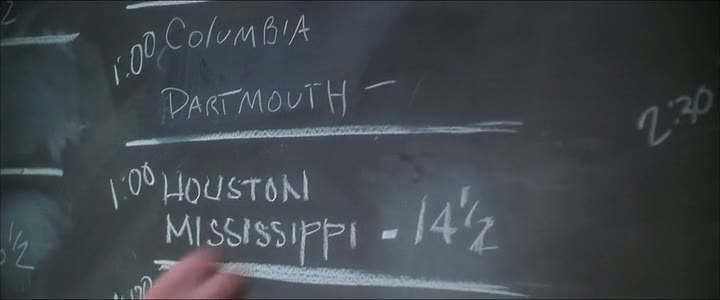 2
1:00 COLUMBIA
DARTMOUTH -
2:30
1:00 HOUSTON
MISSISSIPPI - 14 1/2
1/2